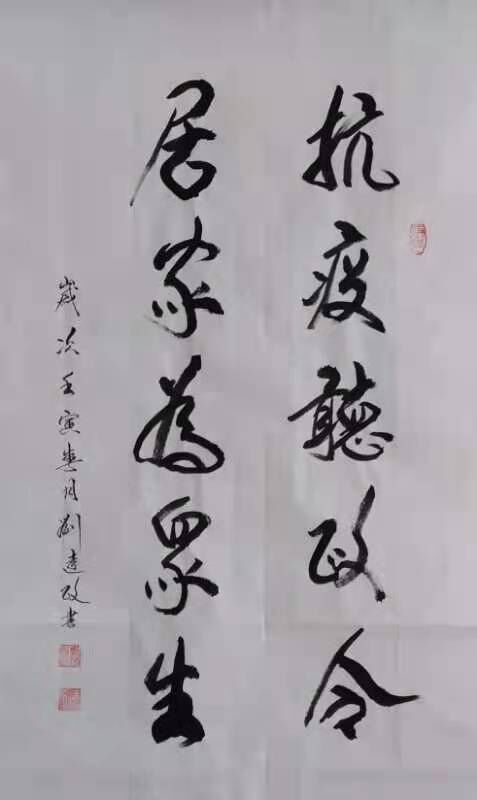 抗疫聽政令
居家為眾生
歲次壬寅春月劉遠政書